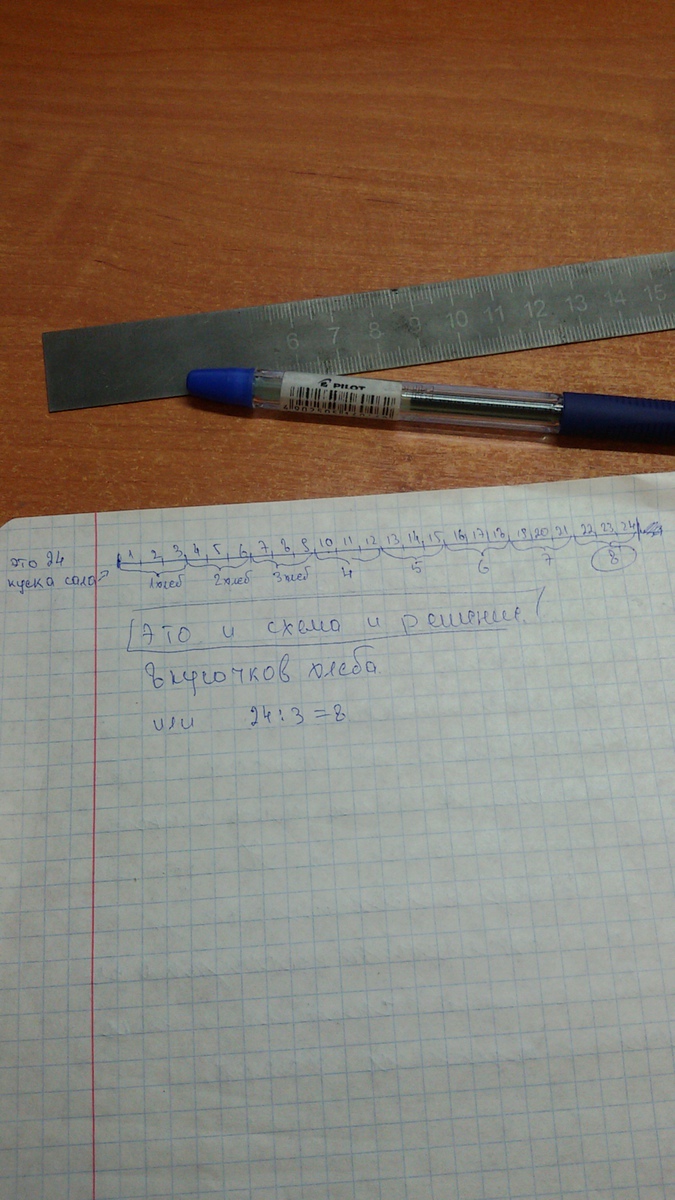 6 7 8 9 10 11 12 13 14 15
PILOT
это 24
куска сала
1 2 3 4 5 6 7 8 9 10 11 12 13 14 15 16 17 18 19 20 21 22 23 24
1хлеб 2хлеб 3хлеб 4 5 6 7 8
Это и схема и решение!
8 кусочков хлеба
или 24:3=8